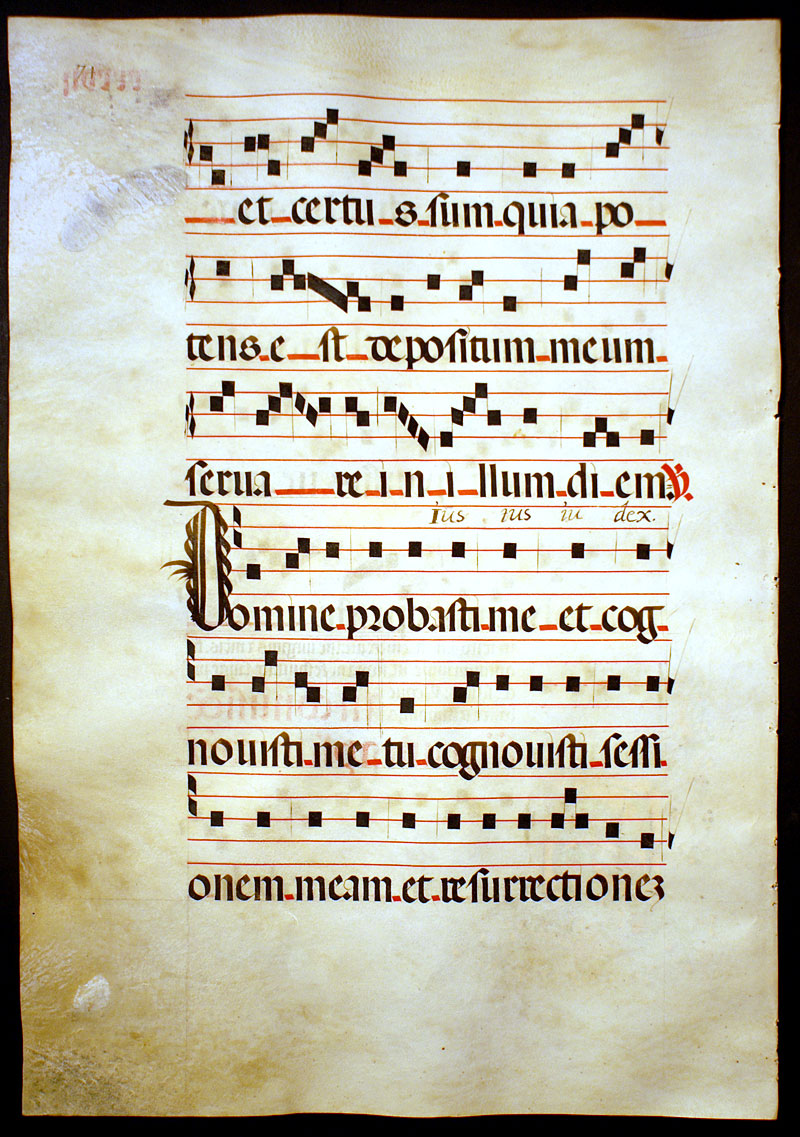 71
et certus sum quia po
tens est depositum meum
seruare in illum diem. ℣.
Ius ius iu dex.
Domine probasti me et cog
nouisti me tu cognouisti sessi
onem meam et resurrectionez